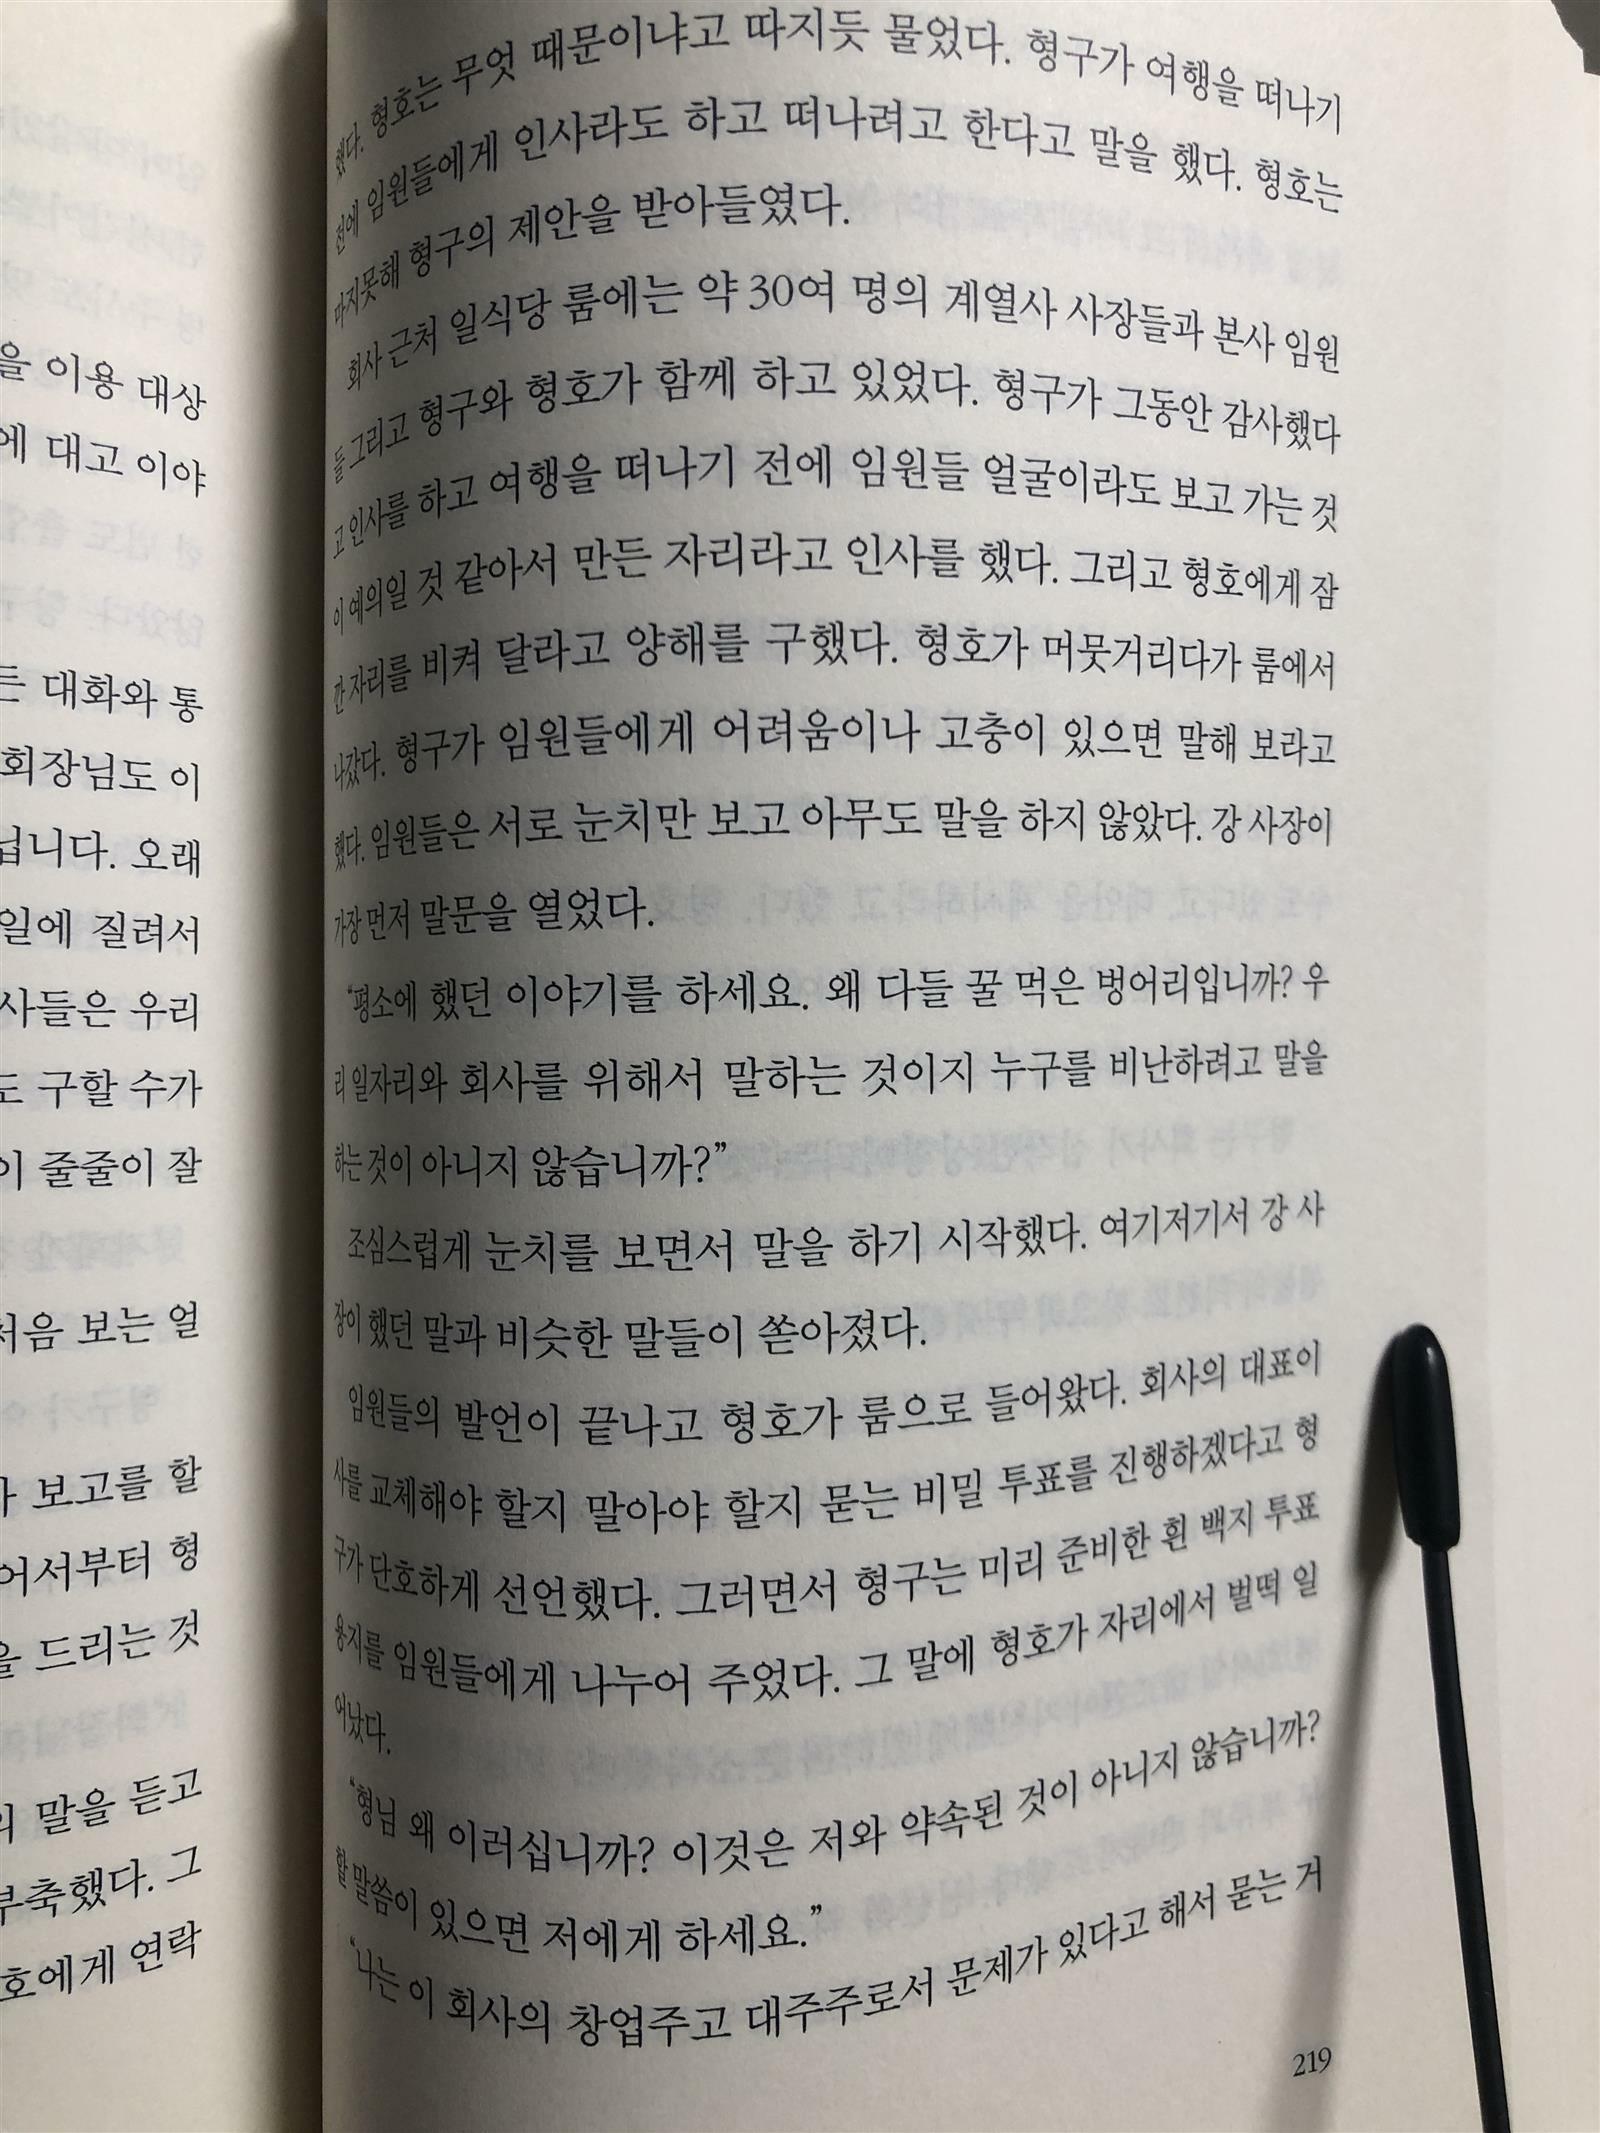 을 이용 대상
에 대고 이야
든 대화와 통
회장님도 이
닙니다. 오래
일에 질려서
사들은 우리
도 구할 수가
이 줄줄이 잘
처음 보는 얼
보고를 할
어서부터 형
을 드리는 것
의 말을 듣고
부축했다. 그
호에게 연락
했다. 형호는 무엇 때문이냐고 따지듯 물었다. 형구가 여행을 떠나기
전에 임원들에게 인사라도 하고 떠나려고 한다고 말을 했다. 형호는
마지못해 형구의 제안을 받아들였다.
회사 근처 일식당 룸에는 약 30여 명의 계열사 사장들과 본사 임원
들 그리고 형구와 형호가 함께 하고 있었다. 형구가 그동안 감사했다
고 인사를 하고 여행을 떠나기 전에 임원들 얼굴이라도 보고 가는 것
이 예의일 것 같아서 만든 자리라고 인사를 했다. 그리고 형호에게 잠
깐 자리를 비켜 달라고 양해를 구했다. 형호가 머뭇거리다가 룸에서
나갔다. 형구가 임원들에게 어려움이나 고충이 있으면 말해 보라고
했다. 임원들은 서로 눈치만 보고 아무도 말을 하지 않았다. 강 사장이
가장 먼저 말문을 열었다.
“평소에 했던 이야기를 하세요. 왜 다들 꿀 먹은 벙어리입니까? 우
리 일자리와 회사를 위해서 말하는 것이지 누구를 비난하려고 말을
하는 것이 아니지 않습니까?”
조심스럽게 눈치를 보면서 말을 하기 시작했다. 여기저기서 강 사
장이 했던 말과 비슷한 말들이 쏟아졌다.
임원들의 발언이 끝나고 형호가 룸으로 들어왔다. 회사의 대표이
사를 교체해야 할지 말아야 할지 묻는 비밀 투표를 진행하겠다고 형
구가 단호하게 선언했다. 그러면서 형구는 미리 준비한 흰 백지 투표
용지를 임원들에게 나누어 주었다. 그 말에 형호가 자리에서 벌떡 일
어났다.
“형님 왜 이러십니까? 이것은 저와 약속된 것이 아니지 않습니까?
할 말씀이 있으면 저에게 하세요.”
“나는 이 회사의 창업주고 대주주로서 문제가 있다고 해서 묻는 거
219